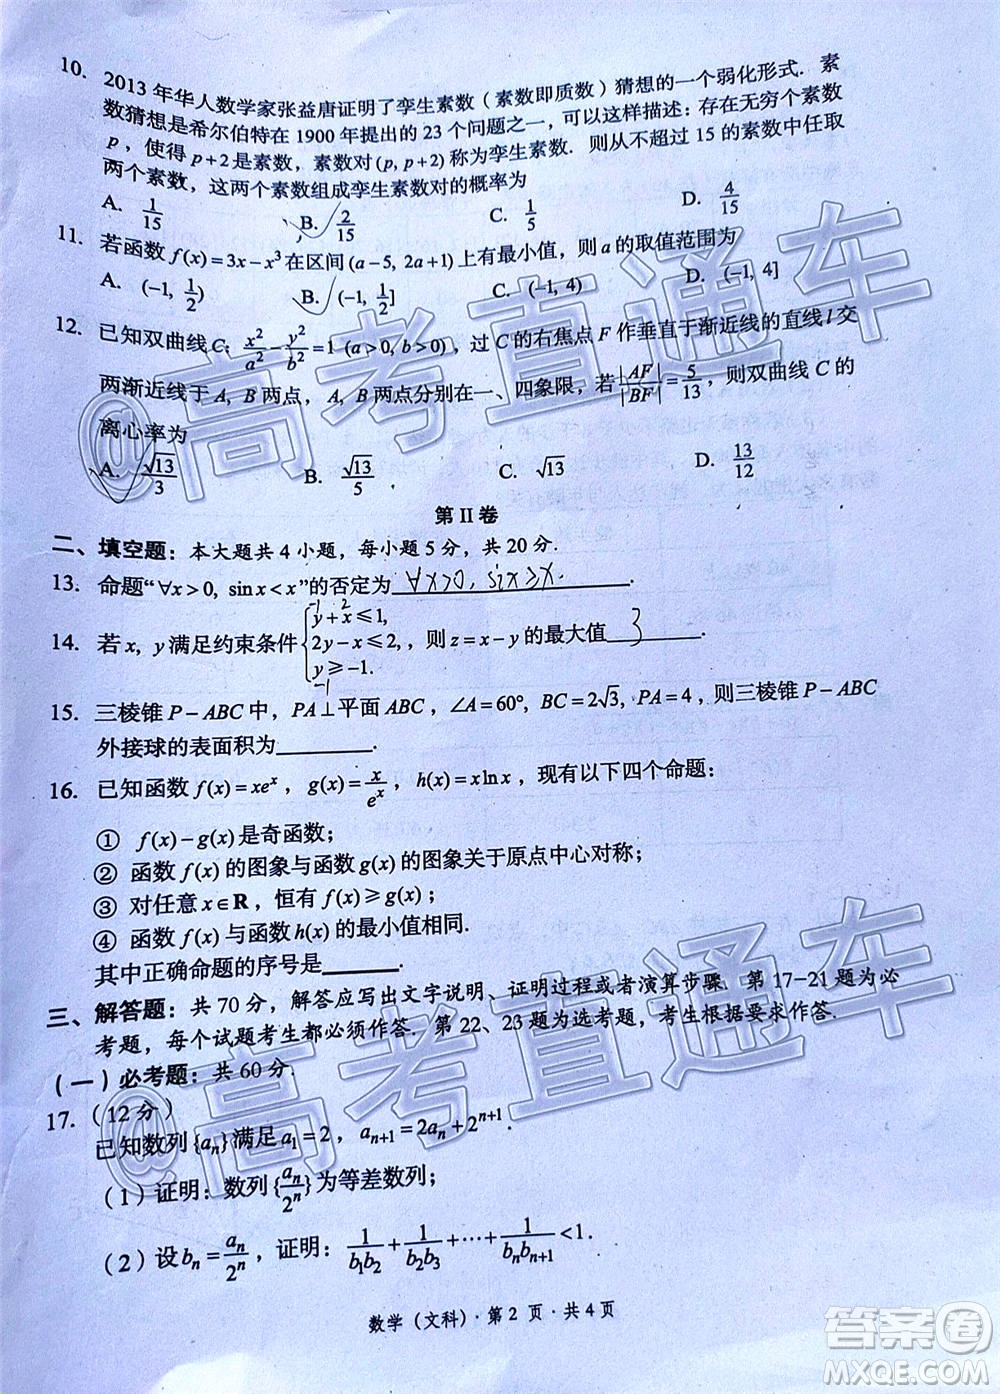 10. 2013 年华人数学家张益唐证明了孪生素数（素数即质数）猜想的一个弱化形式. 素
数猜想是希尔伯特在 1900 年提出的 23 个问题之一，可以这样描述：存在无穷个素数
p，使得 p+2 是素数，素数对(p, p+2) 称为孪生素数. 则从不超过 15 的素数中任取
两个素数，这两个素数组成孪生素数对的概率为
A. 1/15 B. 2/15 C. 1/5 D. 4/15
11. 若函数 f(x)=3x−x³在区间 (a−5, 2a+1) 上有最小值，则 a 的取值范围为
A. (−1, 1/2) B. (−1, 1/2] C. (−1, 4) D. (−1, 4]
12. 已知双曲线C: x²/a² − y²/b² =1 (a>0, b>0)，过 C 的右焦点 F 作垂直于渐近线的直线 l 交
两渐近线于 A, B 两点，A, B 两点分别在一、四象限，若|AF|/|BF| = 5/13，则双曲线 C 的
离心率为
A. √13/3 B. √13/5 C. √13 D. 13/12
第 II 卷
二、填空题：本大题共 4 小题，每小题 5 分，共 20 分.
13. 命题“∀x>0, sin x<x”的否定为 ∀x>0, sinx≥x.
14. 若 x, y 满足约束条件{y+x≤1, 2y−x≤2, y≥−1. ，则 z=x−y 的最大值 3 .
15. 三棱锥 P−ABC 中，PA⊥平面 ABC，∠A=60°, BC=2√3, PA=4，则三棱锥 P−ABC
外接球的表面积为 .
16. 已知函数 f(x)=xeˣ，g(x)=x/eˣ，h(x)=x ln x，现有以下四个命题：
① f(x)−g(x) 是奇函数；
② 函数 f(x) 的图象与函数 g(x) 的图象关于原点中心对称；
③ 对任意 x∈R，恒有 f(x)≥g(x)；
④ 函数 f(x) 与函数 h(x) 的最小值相同.
其中正确命题的序号是 .
三、解答题：共 70 分，解答应写出文字说明、证明过程或者演算步骤. 第 17−21 题为必
考题，每个试题考生都必须作答. 第 22、23 题为选考题，考生根据要求作答.
（一）必考题：共 60 分.
17.（12 分）
已知数列{aₙ}满足 a₁=2，aₙ₊₁=2aₙ+2ⁿ⁺¹.
（1）证明：数列{aₙ/2ⁿ}为等差数列；
（2）设 bₙ=aₙ/2ⁿ，证明：1/b₁b₂ + 1/b₂b₃ +⋯+ 1/bₙbₙ₊₁ <1.
数学（文科）· 第 2 页 · 共 4 页
@高考直通车
@高考直通车
答案圈
MXQE.COM